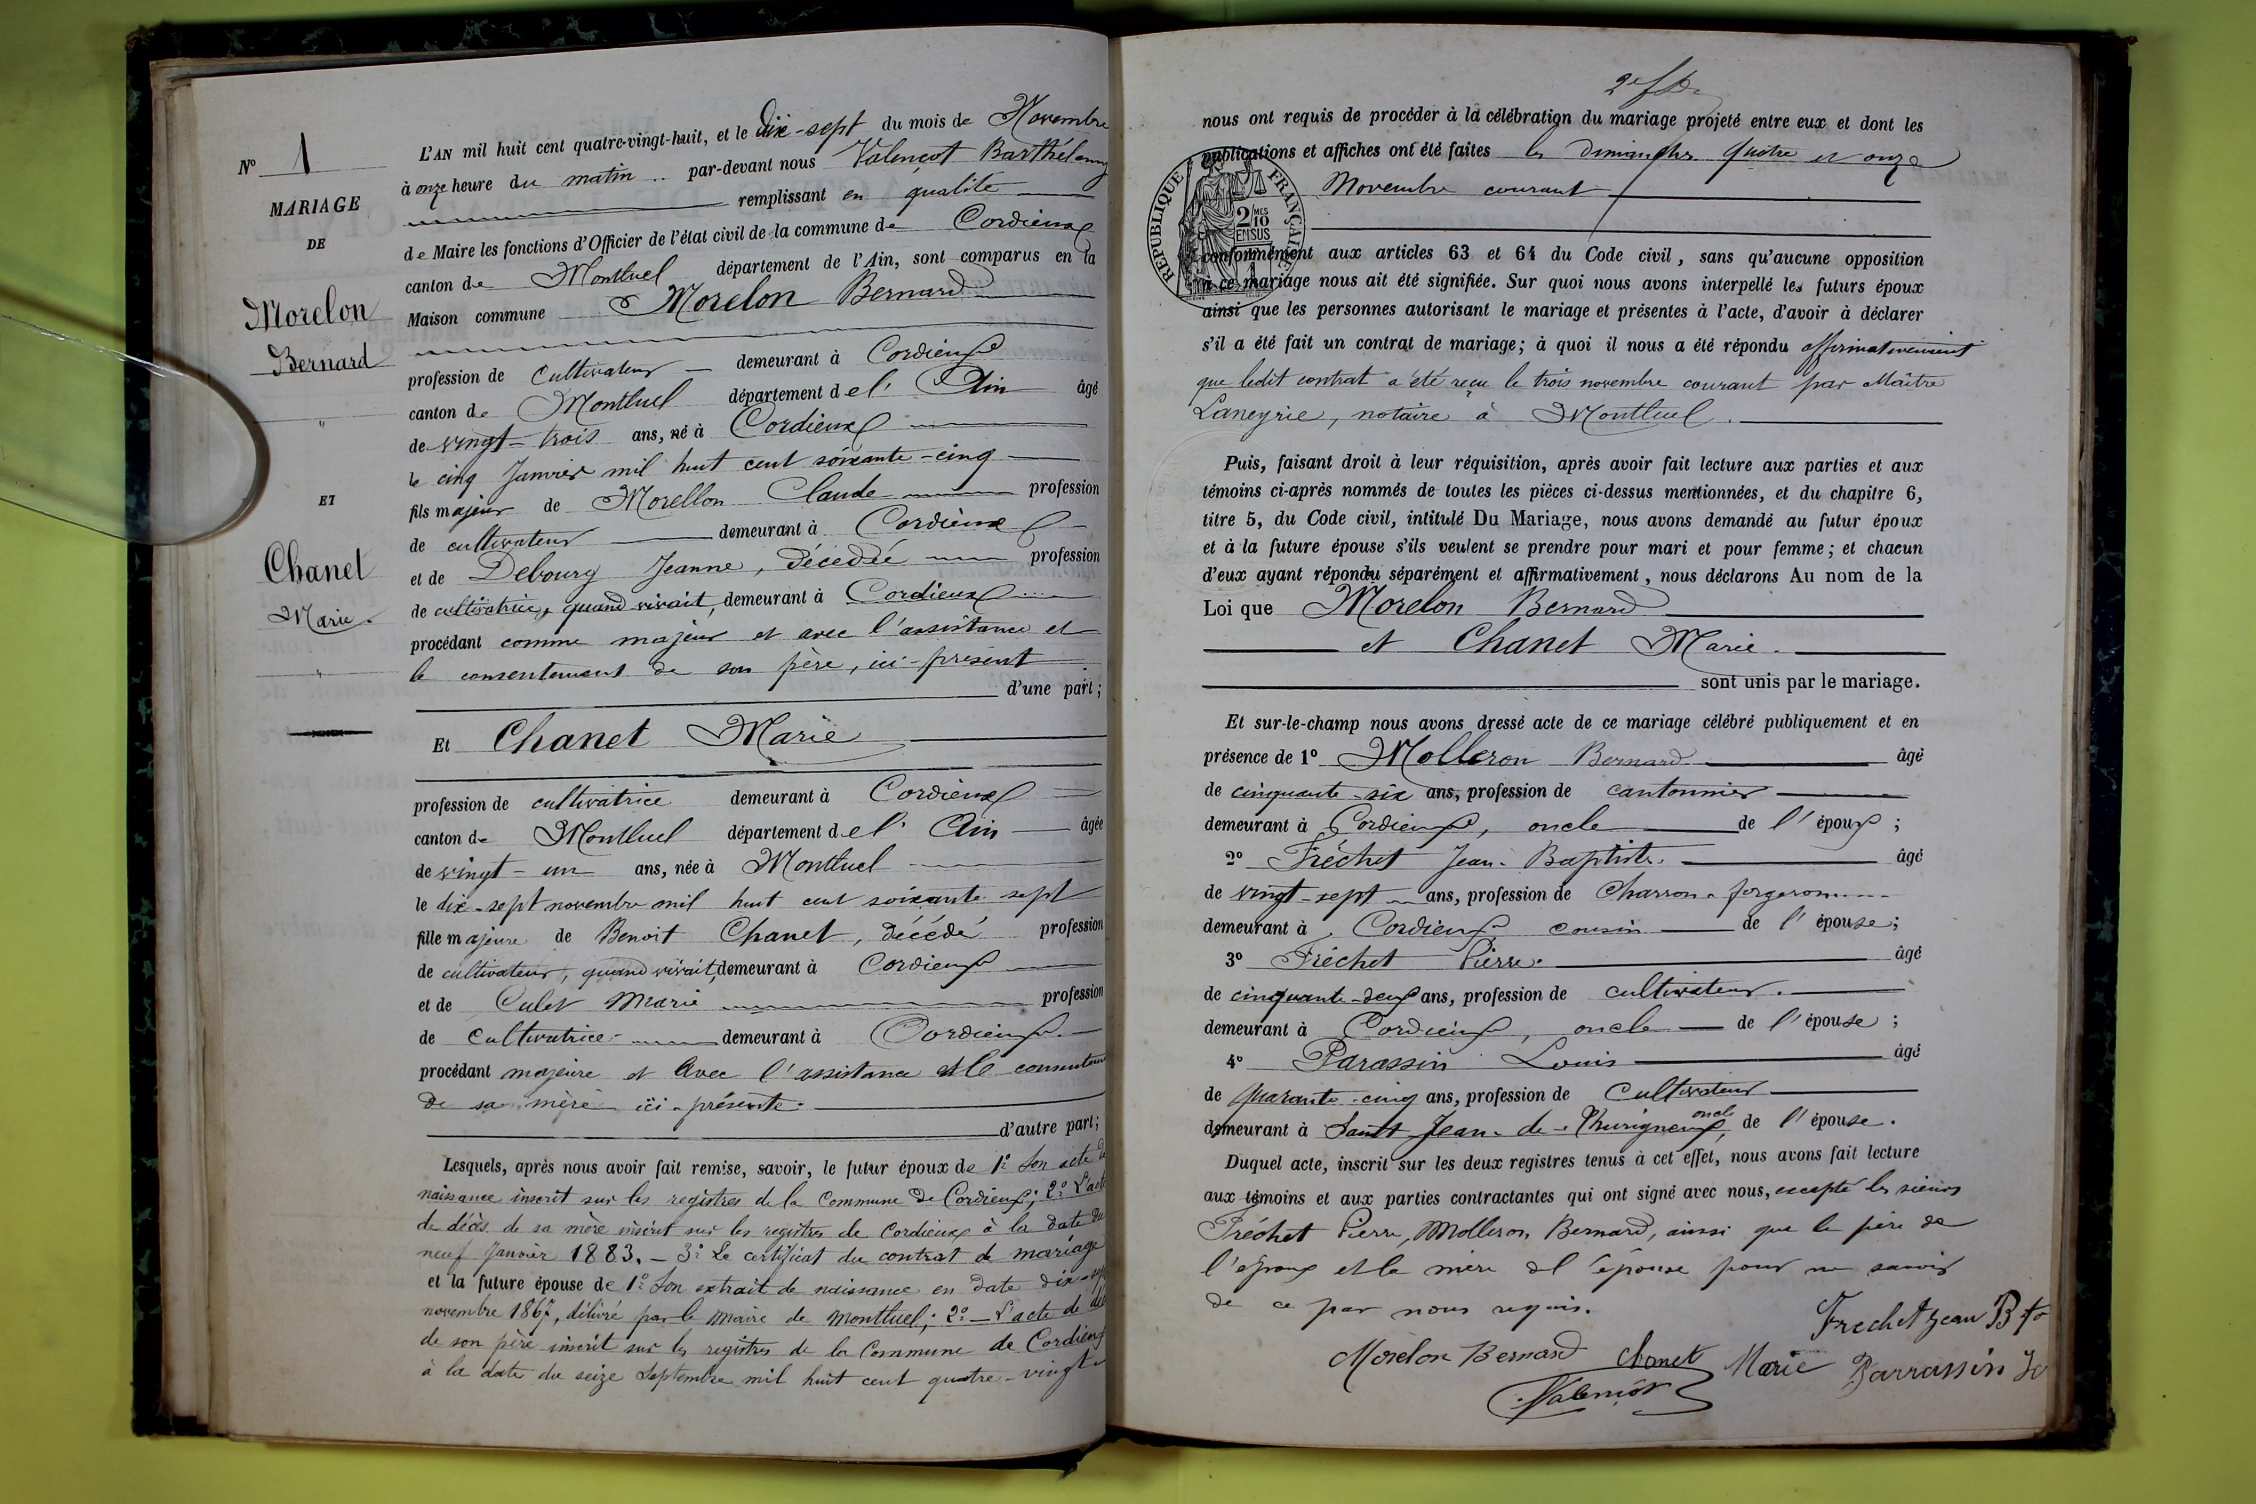 N° 1
MARIAGE
DE
Morelon
Bernard
"
ET
Chanet
Marie.
"
L'AN mil huit cent quatre-vingt-huit, et le Dix-sept du mois de Novembre
à onze heure du matin par-devant nous Valençot Barthélemy
remplissant en qualité
de Maire les fonctions d'Officier de l'état civil de la commune de Cordieux
canton de Montluel département de l'Ain, sont comparus en la
Maison commune Morelon Bernard
profession de cultivateur demeurant à Cordieux
canton de Montluel département de l' Ain âgé
de vingt-trois ans, né à Cordieux
le cinq Janvier mil huit cent soixante-cinq
fils majeur de Morellon Claude profession
de cultivateur demeurant à Cordieux
et de Debourg Jeanne, décédée profession
de cultivatrice, quand vivait, demeurant à Cordieux
procédant comme majeur et avec l'assistance et
le consentement de son père, ici-présent
d'une part;
Et Chanet Marie
profession de cultivatrice demeurant à Cordieux
canton de Montluel département de l' Ain âgée
de vingt-un ans, née à Montluel
le dix-sept novembre mil huit cent soixante sept
fille majeure de Benoit Chanet, décédé profession
de cultivateur, quand vivait, demeurant à Cordieux
et de Culet Marie profession
de cultivatrice demeurant à Cordieux
procédant majeure et avec l'assistance et le
de sa mère ici-présente.
d'autre part;
Lesquels, après nous avoir fait remise, savoir, le futur époux de 1° Son acte de
naissance inscrit sur les registres de la Commune de Cordieux; 2° L'acte
de décès de sa mère inscrit sur les registres de Cordieux à la date du
neuf Janvier 1883. – 3° Le certificat du contrat de mariage
et la future épouse de 1° Son extrait de naissance en date dix-sept
novembre 1867, délivré par le Maire de Montluel; 2° – L'acte de
de son père inscrit sur les registres de la Commune de Cordieux
à la date du seize Septembre mil huit cent quatre-vingt-
nous ont requis de procéder à la célébration du mariage projeté entre eux et dont les
publications et affiches ont été faites les dimanches quatre et onze
Novembre courant
RÉPUBLIQUE FRANÇAISE
2 MES
10
EN SUS
conformément aux articles 63 et 64 du Code civil, sans qu'aucune opposition
à ce mariage nous ait été signifiée. Sur quoi nous avons interpellé les futurs époux
ainsi que les personnes autorisant le mariage et présentes à l'acte, d'avoir à déclarer
s'il a été fait un contrat de mariage; à quoi il nous a été répondu affirmativement
que ledit contrat a été reçu le trois novembre courant par Maître
Laneyrie, notaire à Montluel.
Puis, faisant droit à leur réquisition, après avoir fait lecture aux parties et aux
témoins ci-après nommés de toutes les pièces ci-dessus mentionnées, et du chapitre 6,
titre 5, du Code civil, intitulé Du Mariage, nous avons demandé au futur époux
et à la future épouse s'ils veulent se prendre pour mari et pour femme; et chacun
d'eux ayant répondu séparément et affirmativement, nous déclarons Au nom de la
Loi que Morelon Bernard
et Chanet Marie.
sont unis par le mariage.
Et sur-le-champ nous avons dressé acte de ce mariage célébré publiquement et en
présence de 1° Molleron Bernard âgé
de cinquante-six ans, profession de cantonnier
demeurant à Cordieux, oncle de l'époux;
2° Fréchet Jean-Baptiste. âgé
de vingt-sept ans, profession de Charron-forgeron
demeurant à Cordieux cousin de l'épouse;
3° Fréchet Pierre. âgé
de cinquante-deux ans, profession de cultivateur.
demeurant à Cordieux, oncle de l'épouse;
4° Parassin Louis âgé
de quarante-cinq ans, profession de Cultivateur
demeurant à Saint-Jean-de-Thurigneux, oncle de l'épouse.
Duquel acte, inscrit sur les deux registres tenus à cet effet, nous avons fait lecture
aux témoins et aux parties contractantes qui ont signé avec nous, excepté les sieurs
Fréchet Pierre, Molleron Bernard, ainsi que le père de
l'époux et la mère de l'épouse pour ne savoir
de ce par nous requis.
Frechet Jean Bte
Morelon Bernard Chanet Marie Parrassin
Valençot